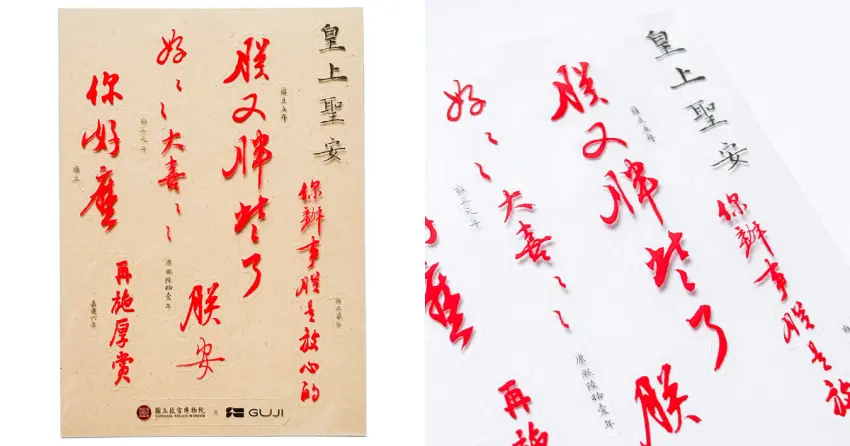 皇上聖安
你辦事朕是放心的
雍正五年
朕又胖些了
朕安
好〻〻大喜〻〻
雍正元年
康熙陸拾壹年
你好麼
雍正
再施厚賞
嘉慶六年
國立故宮博物院
NATIONAL PALACE MUSEUM
x
GUJI
皇上聖安
你辦事朕是放
雍正五年
朕又胖些了
朕
好〻〻大喜〻〻
雍正元年
康熙陸拾壹年
再施